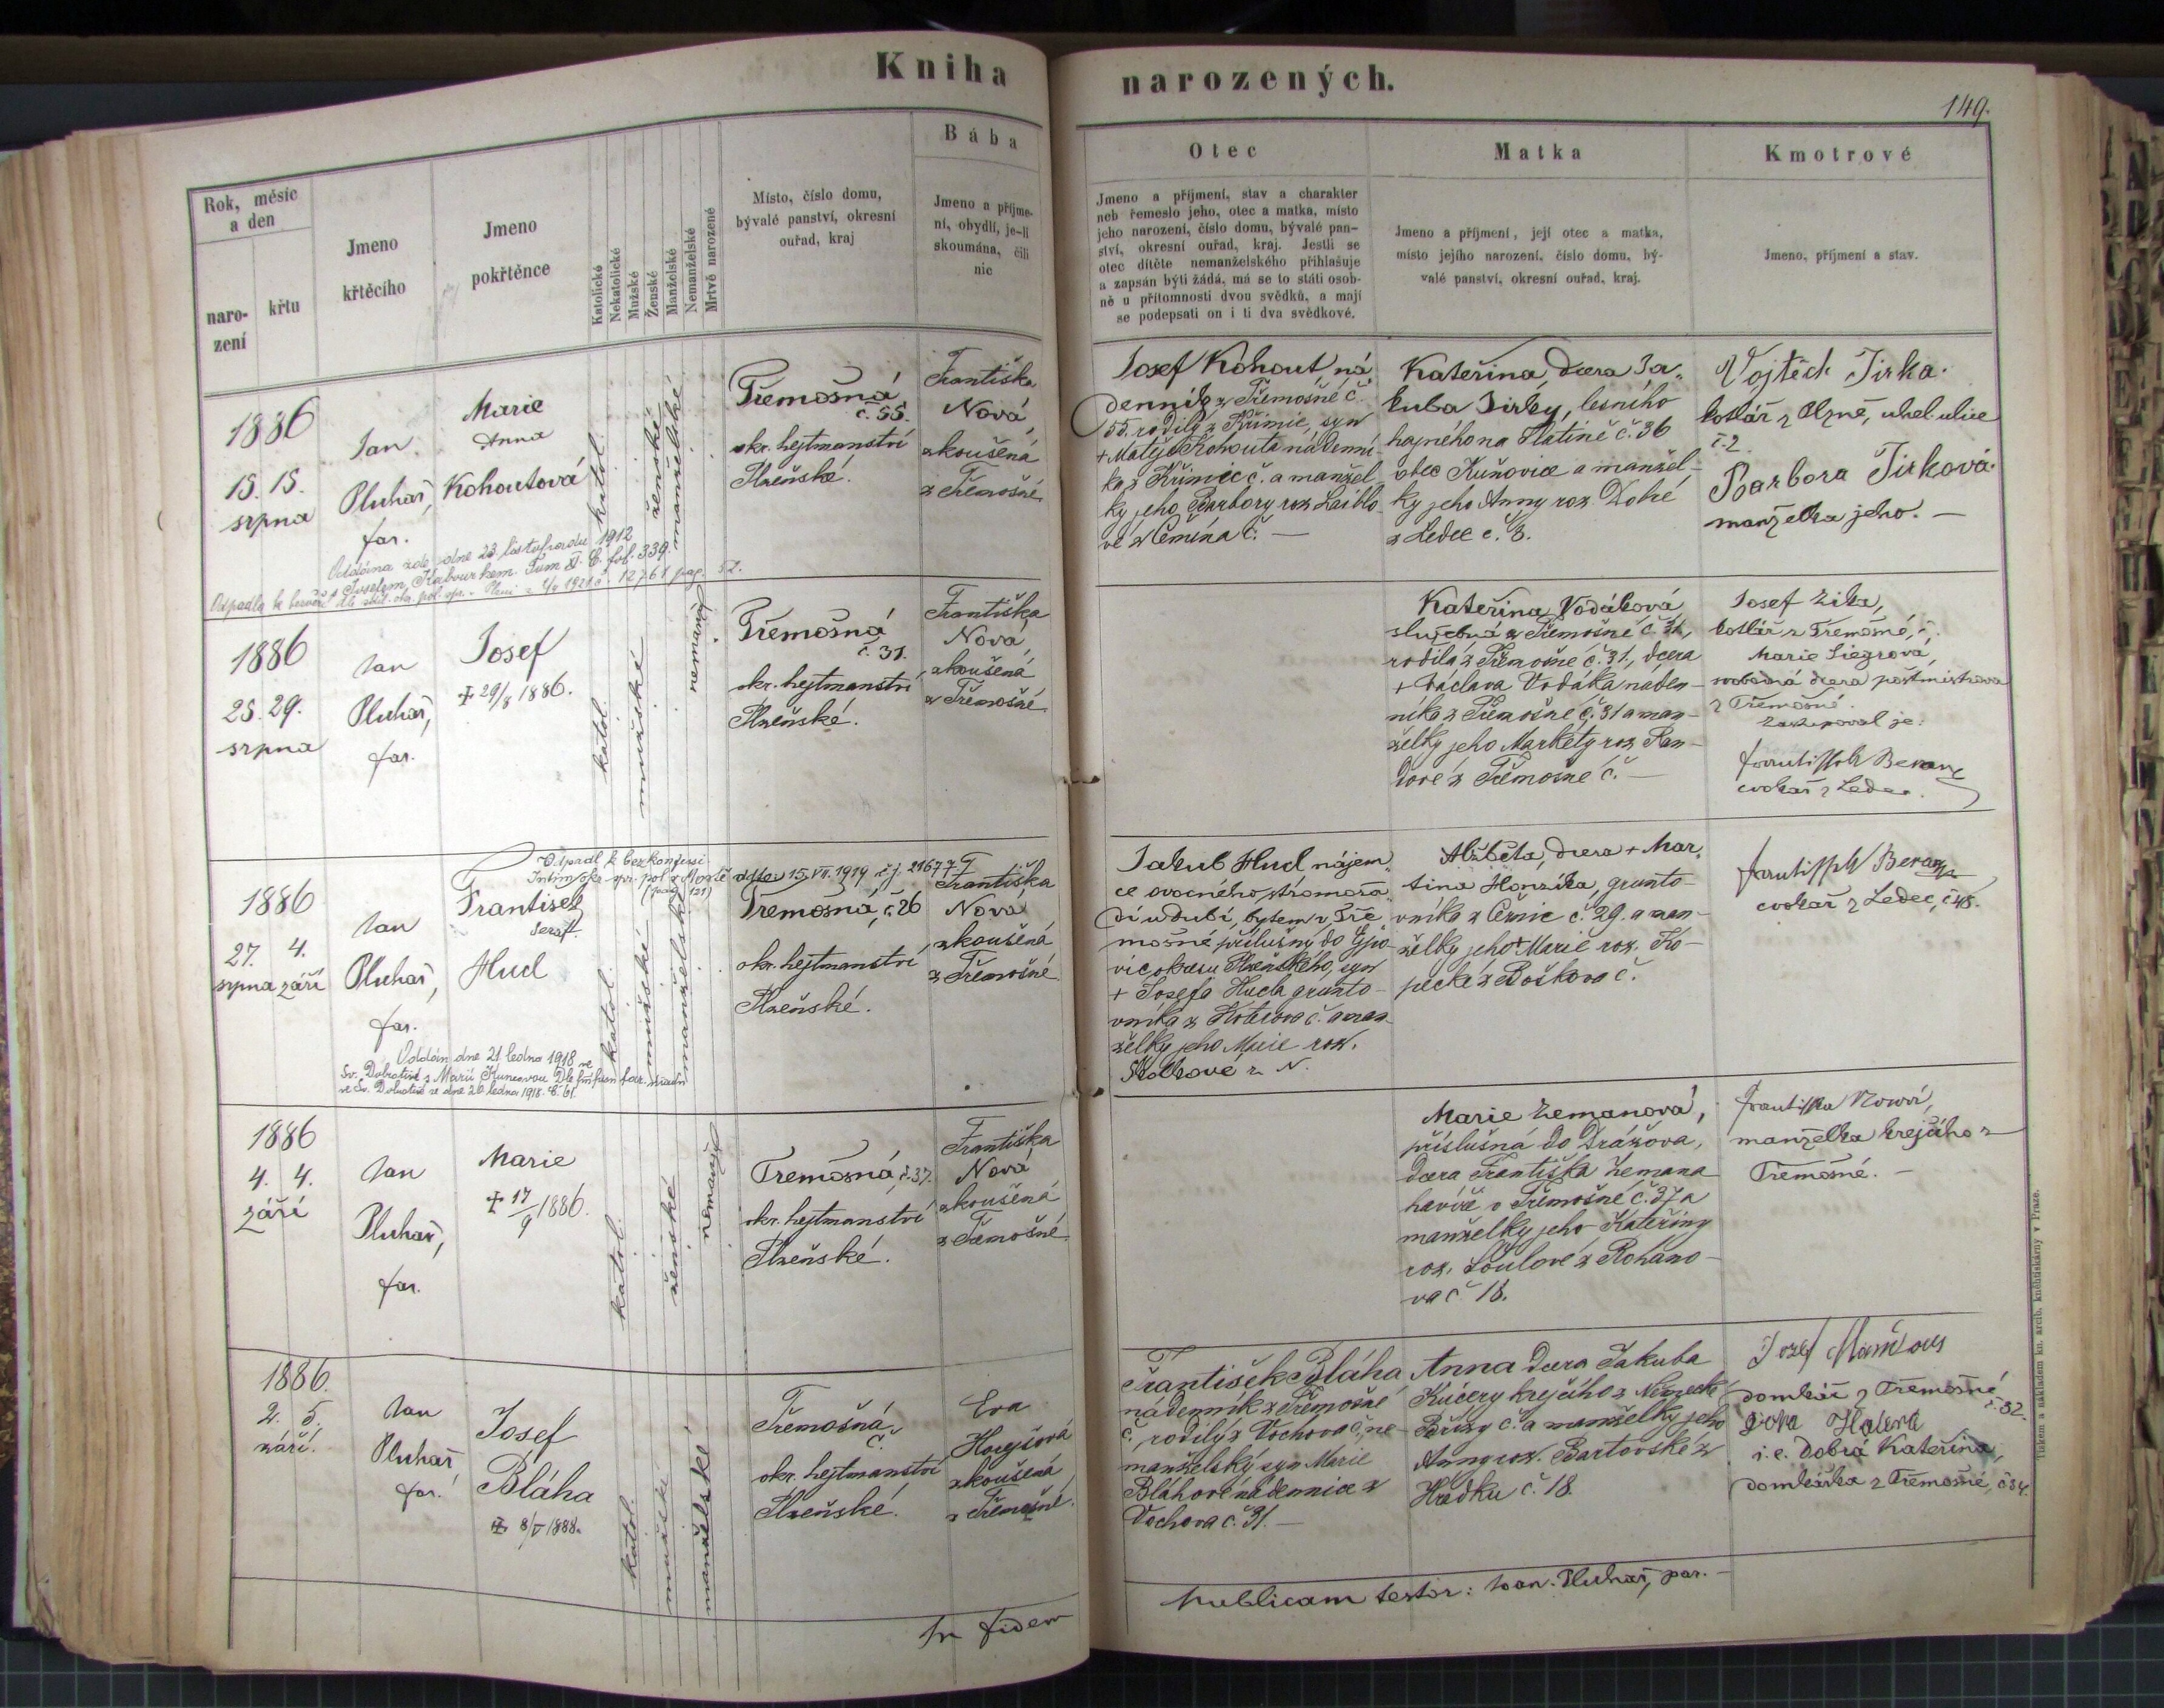 Kniha narozených.
149.
Rok, měsíc
a den
naro-
zení
křtu
Jmeno
křtěcího
Jmeno
pokřtěnce
Katolické
Nekatolické
Mužské
Ženské
Manželské
Nemanželské
Mrtvě narozené
Místo, číslo domu,
bývalé panství, okresní
ouřad, kraj
Bába
Jmeno a příjme-
ní, obydlí, je-li
skoumána, čili
nic
Otec
Jmeno a příjmení, stav a charakter
neb řemeslo jeho, otec a matka, místo
jeho narození, číslo domu, bývalé pan-
ství, okresní ouřad, kraj. Jestli se
otec dítěte nemanželského přihlašuje
a zapsán býti žádá, má se to státi osob-
ně u přítomnosti dvou svědků, a mají
se podepsati on i ti dva svědkové.
Matka
Jmeno a příjmení, její otec a matka,
místo jejího narození, číslo domu, bý-
valé panství, okresní ouřad, kraj.
Kmotrové
Jmeno, příjmení a stav.
1886
15. 15.
srpna
Jan
Pluhař,
far.
Marie
Anna
Kohoutová
katol.
ženské
manželské
Oddána zde dne 23. listopadu 1912
s Josefem Kabourkem. Tom XI. C. fol. 339.
Třemošná
č. 55.
okr. hejtmanství
Plzeňské.
Františka
Nová,
zkoušená
z Třemošné
Josef Kohout, ná
denník z Třemošné č.
55. rodilý z Křimic, syn
+ Matěje Kohouta nádenní-
ka z Křimic č. a manžel-
ky jeho Barbory roz. Laiblo-
vé z Čemína č. —
Kateřina, dcera Ja-
kuba Jirky, lesního
hajného na Platině č. 36
obec Kuňovice a manžel-
ky jeho Anny roz. Dohé
z Ledec č. 8.
Vojtěch Jirka.
kotlář z Plzně, uhel. ulice
č. 2.
Barbora Jirková.
manželka jeho. —
1886
28. 29.
srpna
Jan
Pluhař,
far.
Josef
+ 29/8 1886.
katol.
mužské
nemanž.
Třemošná
č. 31.
okr. hejtmanství
Plzeňské.
Františka
Nová,
zkoušená
z Třemošné
Kateřina Vodáková
služebná z Třemošné č. 31,
rodilá z Třemošné č. 31., dcera
+ Václava Vodáka náden-
níka z Třemošné č. 31 a man-
želky jeho Markéty roz. Pan-
dové z Třemošné č. —
Josef Zika,
kotlář z Třemošné, č.
Marie Siegrova,
svobodná dcera poštmistrova
z Třemošné.
Zastupoval je:
František Beran
cvokař z Ledec.
1886
27. 4.
srpna září
Jan
Pluhař,
far.
Odpadl k bezkonfessi
František
Seraf.
Hucl
katol.
mužské
manželské
Oddán dne 21. ledna 1918 ve
Sv. Dobrotivé s Marií Kuncovou
ve Sv. Dobrotivé ze dne 20. ledna 1918. č. 61.
Třemošná, č. 26
okr. hejtmanství
Plzeňské.
Františka
Nová
zkoušená
z Třemošné
Jakub Hucl nájem-
ce ovocného stromořa-
dí u Dubí, bytem v Tře-
mošné příslušný do Ejpo-
vic okresu Plzeňského, syn
+ Josefa Hucla grunto-
vníka z Koterova č. a man-
želky jeho Marie roz.
Kolkové z N.
Alžběta, dcera + Mar-
tina Honzíka, grunto-
vníka z Černic č. 29. a man-
želky jeho + Marie roz. Ko-
pecké z Božkova č.
František Beran
cvokař z Ledec, č. 48.
1886
4. 4.
září
Jan
Pluhař,
far.
Marie
+ 17/9 1886.
katol.
ženské
nemanž.
Třemošná, č. 37.
okr. hejtmanství
Plzeňské.
Františka
Nová,
zkoušená
z Třemošné
Marie Zemanová,
příslušná do Drážova,
dcera Františka Zemana
havíře v Třemošné č. 37 a
manželky jeho Kateřiny
roz. Součlové z Rohano-
va č. 18.
Františka Nová,
manželka krejčího z
Třemošné. —
1886.
2. 5.
září.
Jan
Pluhař
far.
Josef
Bláha
+ 8/V 1888.
katol.
mužské
manželské
Třemošná
č.
okr. hejtmanství
Plzeňské.
Eva
Horejšová
zkoušená
z Třemošné.
František Bláha,
nádenník z Třemošné
č., rodilý z Vochova č., ne-
manželský syn Marie
Bláhové nádennice z
Vochova č. 31. —
Anna dcera Jakuba
Kučery krejčího z Německé
Břízy č. a manželky jeho
Anny roz. Bartovské z
Hrádku č. 18.
Jozef
domkář z Třemošné
č. 82.
i. e. Dobrá Kateřina,
domkářka z Třemošné, č. 34.
In fidem publicam testor: Joan. Pluhař, par. —
Tiskem a nákladem kn. arcib. kněhtiskárny v Praze.